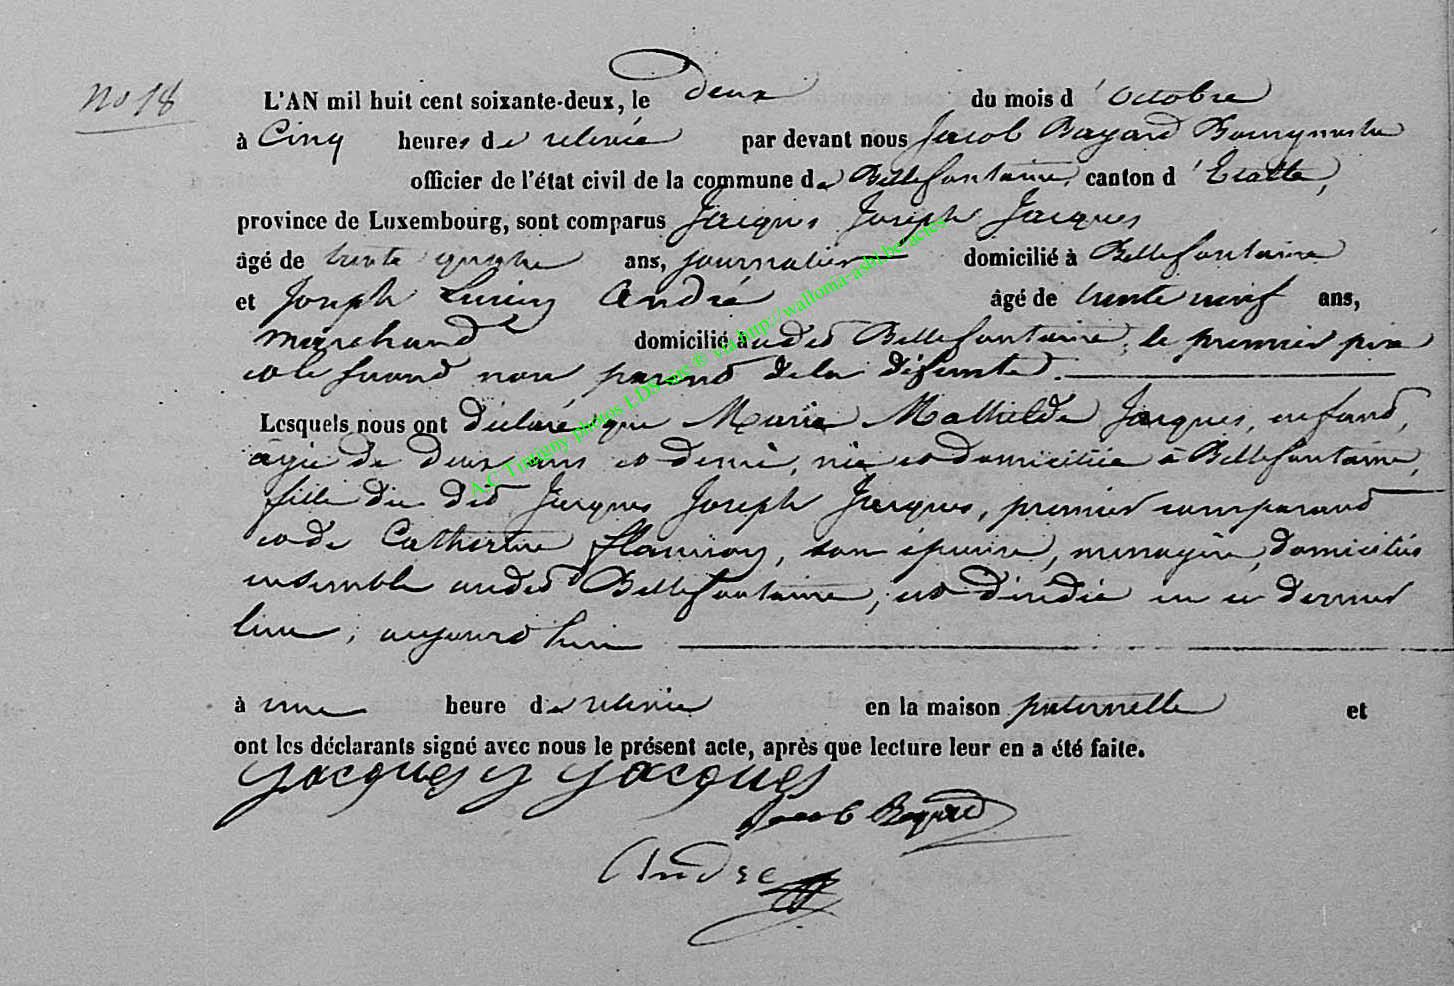 No 18
L'AN mil huit cent soixante-deux, le deux du mois d'octobre
à Cinq heures de relevée par devant nous Jacob Bayard Bourgmestre
officier de l'état civil de la commune de Bellefontaine, canton d'Etalle,
province de Luxembourg, sont comparus Jacques Joseph Jacques
âgé de trente quatre ans, journalier domicilié à Bellefontaine
et Joseph André âgé de trente neuf ans,
marchand domicilié à udit Bellefontaine, le premier père
et le second non parent de la défunte.
Lesquels nous ont déclaré que Marie Mathilde Jacques, enfant,
âgée de deux ans et demi, née et domiciliée à Bellefontaine,
fille du dit Jacques Joseph Jacques, premier comparant
et de Catherine, son épouse, ménagère, domiciliés
ensemble audit Bellefontaine, est décédée en ce dernier
lieu, aujourd'hui
à une heure de relevée en la maison paternelle et
ont les déclarants signé avec nous le présent acte, après que lecture leur en a été faite.
Jacques J Jacques
Jacob Bayard
André
A.C Tintigny photos LDS sur ® via http://walloma-asbl.be/actes